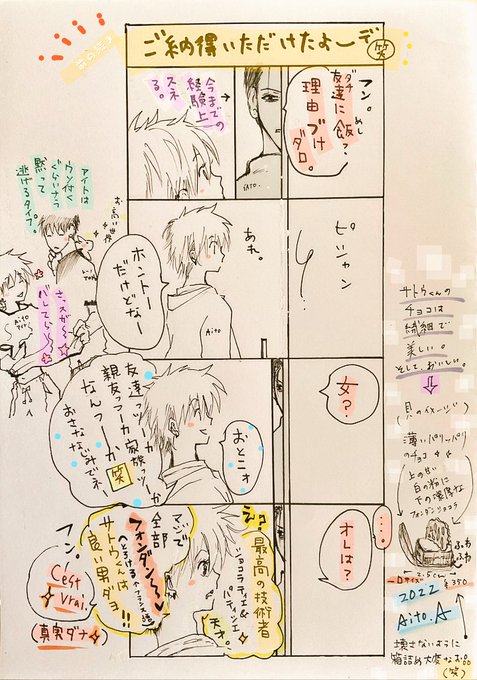 ご納得いただけたよーデ(笑)
フン。
友達に飯?
ダチ
めし
理由づけ
ダロ。
今までの
経験上の
スネ
る。
SATO.
ピシャン
あれ。
ホントー
だけどなー
AITO
アイトは
ウソ付く
ぐらいなら
黙って
逃げるタイプ。
バレてら〜
女?
おとこォ
友達っツーか
親友っツーか家族っツーか
なんつーか
おさななじみでネー
笑
・・・
オレは?
えっ
最高の技術者
ショコラティエ&
パティシエ
天才。
マジで
全部
フォンダン〜
サトウくんは
良い男ダヨ!!
フン。
C'est
vrai.
(真実ダナ)
サトウくんの
チョコは
繊細で
美しい。
そして、おいしい。
(貝のイメージ)
薄いパリッパリ
のチョコ
上の方
白の粉に
その濃厚な
フォンダンショコラ
ふわ
ふわ
2.5cm
Dサイズ
¥350
2022
Aito.A
壊さないように
箱詰め大変なお品
(笑)